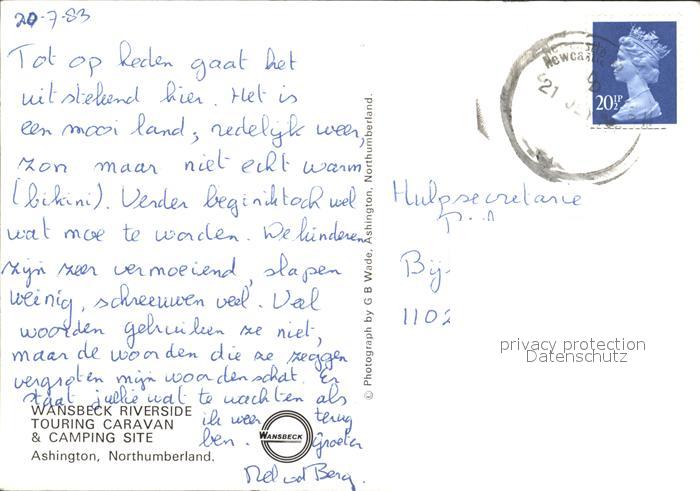 20-7-83
Tot op heden gaat het
uitstekend hier. Het is
een mooi land, redelijk weer,
zon maar niet echt warm
(bikini). Verder begin ik toch wel
wat moe te worden. De kinderen
zijn zeer vermoeiend, slapen
weinig, schreeuwen veel. Veel
woorden gebruiken ze niet,
maar de woorden die ze zeggen
vergroten mijn woordenschat. Er
staat jullie wat te wachten als
ik weer terug
ben. Groeten
Mel vd Berg.
WANSBECK RIVERSIDE
TOURING CARAVAN
& CAMPING SITE
Ashington, Northumberland.
WANSBECK
© Photograph by G B Wade, Ashington, Northumberland.
Newcastle
21
20½P
Hulpsecretarie
Bij
1102
privacy protection
Datenschutz